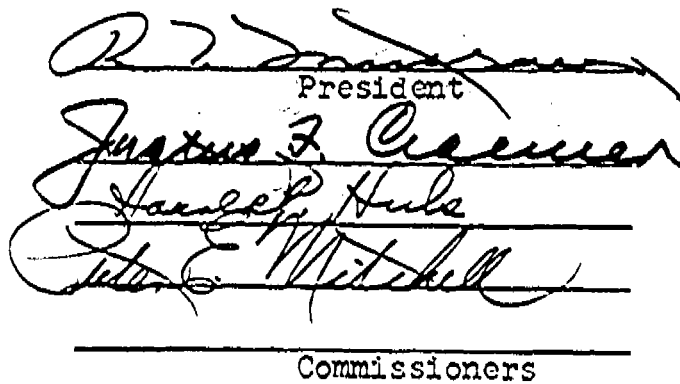 R.
President
Justus F. Craemer
Harold P Huls
Peter E. Mitchell
Commissioners